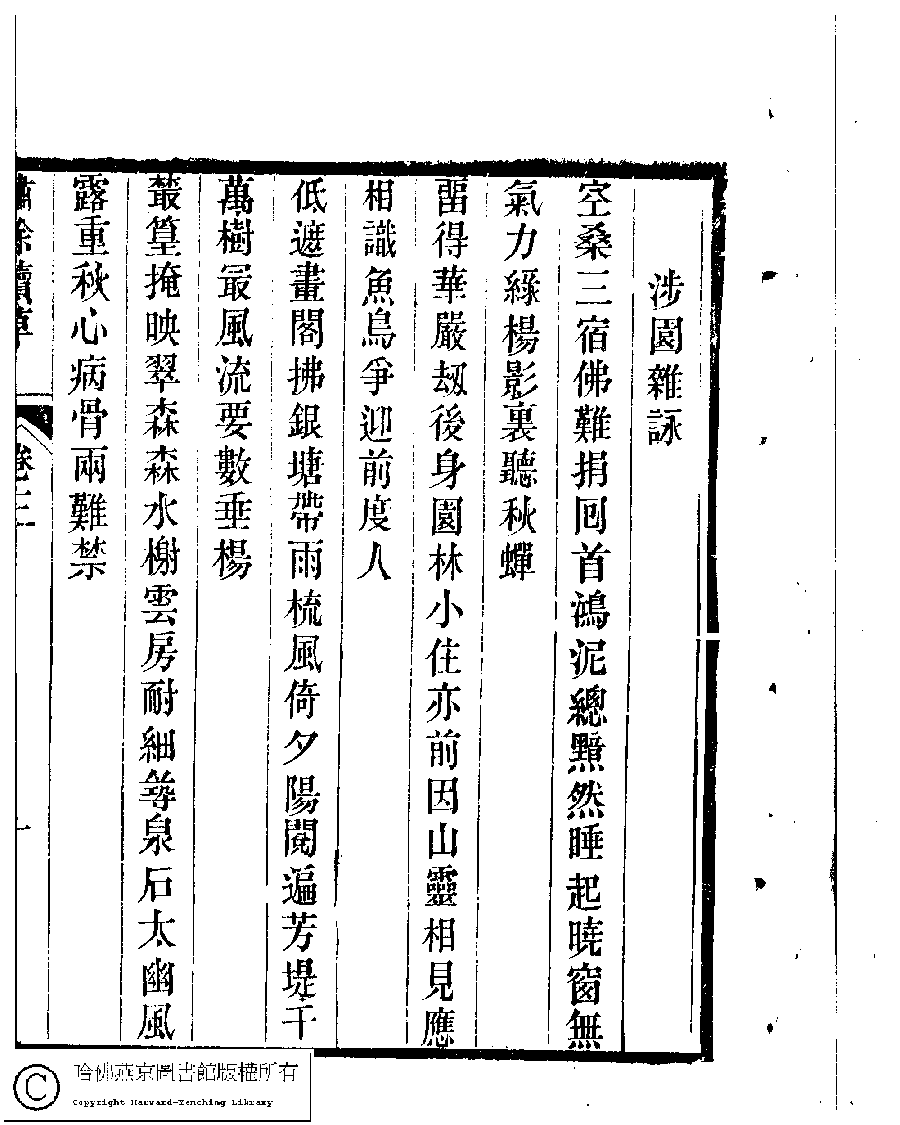 涉園雜詠
空桑三宿佛難捐囘首鴻泥總黯然睡起曉窗無
氣力綠楊影裏聽秋蟬
畱得華嚴刼後身園林小住亦前因山靈相見應
相識魚鳥爭迎前度人
低遮畫閣拂銀塘帶雨梳風倚夕陽閱遍芳堤千
萬樹最風流要數垂楊
叢篁掩映翠森森水榭雲房耐細尋泉石太幽風
露重秋心病骨兩難禁
續草
卷三
一
哈佛燕京圖書館版權所有
Copyright Harvard-Yenching Library